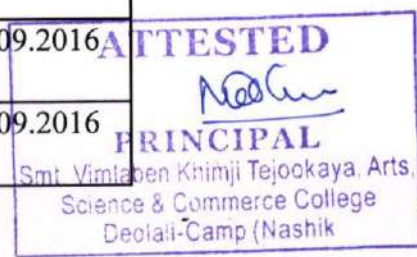 09.2016
ATTESTED
09.2016
PRINCIPAL
Smt. Vimlaben Khimji Tejookaya, Arts,
Science & Commerce College
Deolali-Camp (Nashik